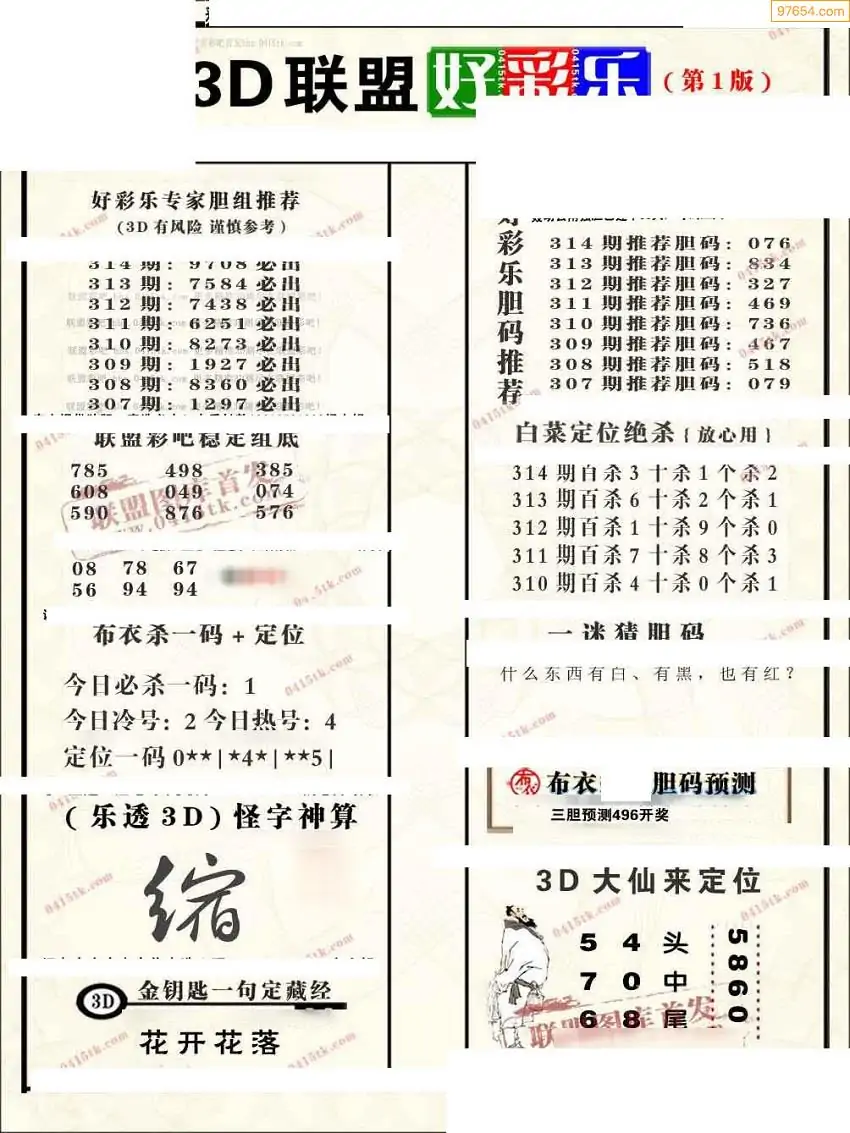 97654.com
3D联盟好彩乐(第1版)
好彩乐专家胆组推荐
(3D有风险 谨慎参考)
314期: 9708必出
313期: 7584必出
312期: 7438必出
311期: 6251必出
310期: 8273必出
309期: 1927必出
308期: 8360必出
307期: 1297必出
联盟彩吧稳定组底
785 498 385
608 049 074
590 876 576
08 78 67
56 94 94
布衣杀一码+定位
今日必杀一码: 1
今日冷号: 2 今日热号: 4
定位一码 0**|*4*|**5|
(乐透3D)怪字神算
缩
3D 金钥匙一句定藏经
花开花落
好彩乐胆码推荐
314期推荐胆码: 076
313期推荐胆码: 834
312期推荐胆码: 327
311期推荐胆码: 469
310期推荐胆码: 736
309期推荐胆码: 467
308期推荐胆码: 518
307期推荐胆码: 079
白菜定位绝杀{放心用}
314期百杀3十杀1个杀2
313期百杀6十杀2个杀1
312期百杀1十杀9个杀0
311期百杀7十杀8个杀3
310期百杀4十杀0个杀1
一迷猜胆码
什么东西有白、有黑，也有红？
布衣 胆码预测
三胆预测496开奖
3D大仙来定位
5 4 头
7 0 中
6 8 尾
5860
联盟图库首发
www.0415tk.com
0415tk.com